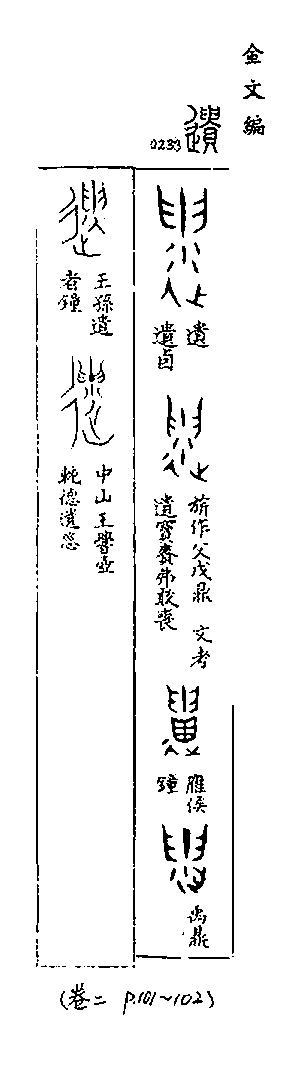 金文編
遺
0233
遺 遺卣
旂作父戊鼎 文考
遺寶賚弗敢喪
雁侯
鐘
禹鼎
王孫遺
者鐘
中山王壺
德遺
(卷二 P.101~102)